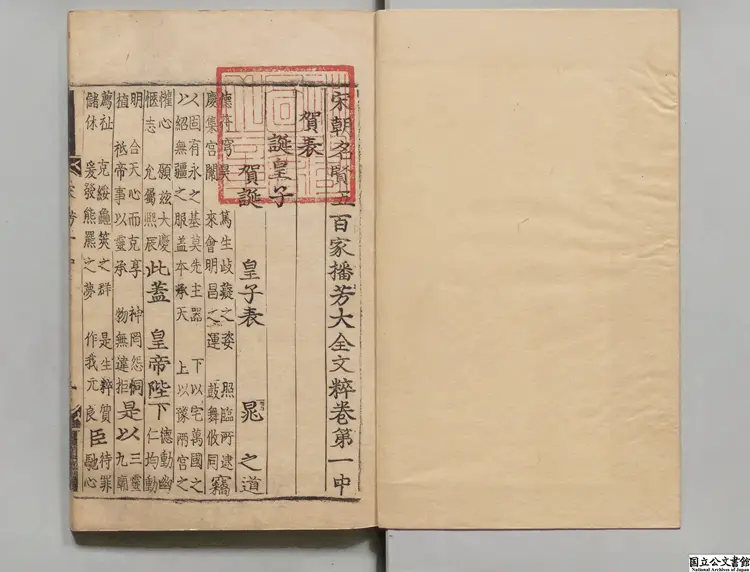 宋朝名賢五百家播芳大全文粹卷第一中
賀表
誕皇子
賀誕 皇子表 晁 之道
德符穹昊 篤生歧嶷之姿 照臨所逮
慶集宮闈 來會明昌之運 鼓舞攸同 竊
以固有永之基莫先主器 下以宅萬國之
以紹無疆之服蓋本承天 上以豫兩宮之
懽心 願玆大慶
愜志 允屬熙辰 此蓋 皇帝陛下 德動幽
仁均動
明 合天心而克享 神罔怨恫
植 祗帝事以靈承 物無違拒 是以 三靈
九廟
薦祉 克綏螽 之群 是生粹質
儲休 爰發熊羆之夢 作我元良 臣 待罪
馳心
国立公文書館
National Archives of Japan